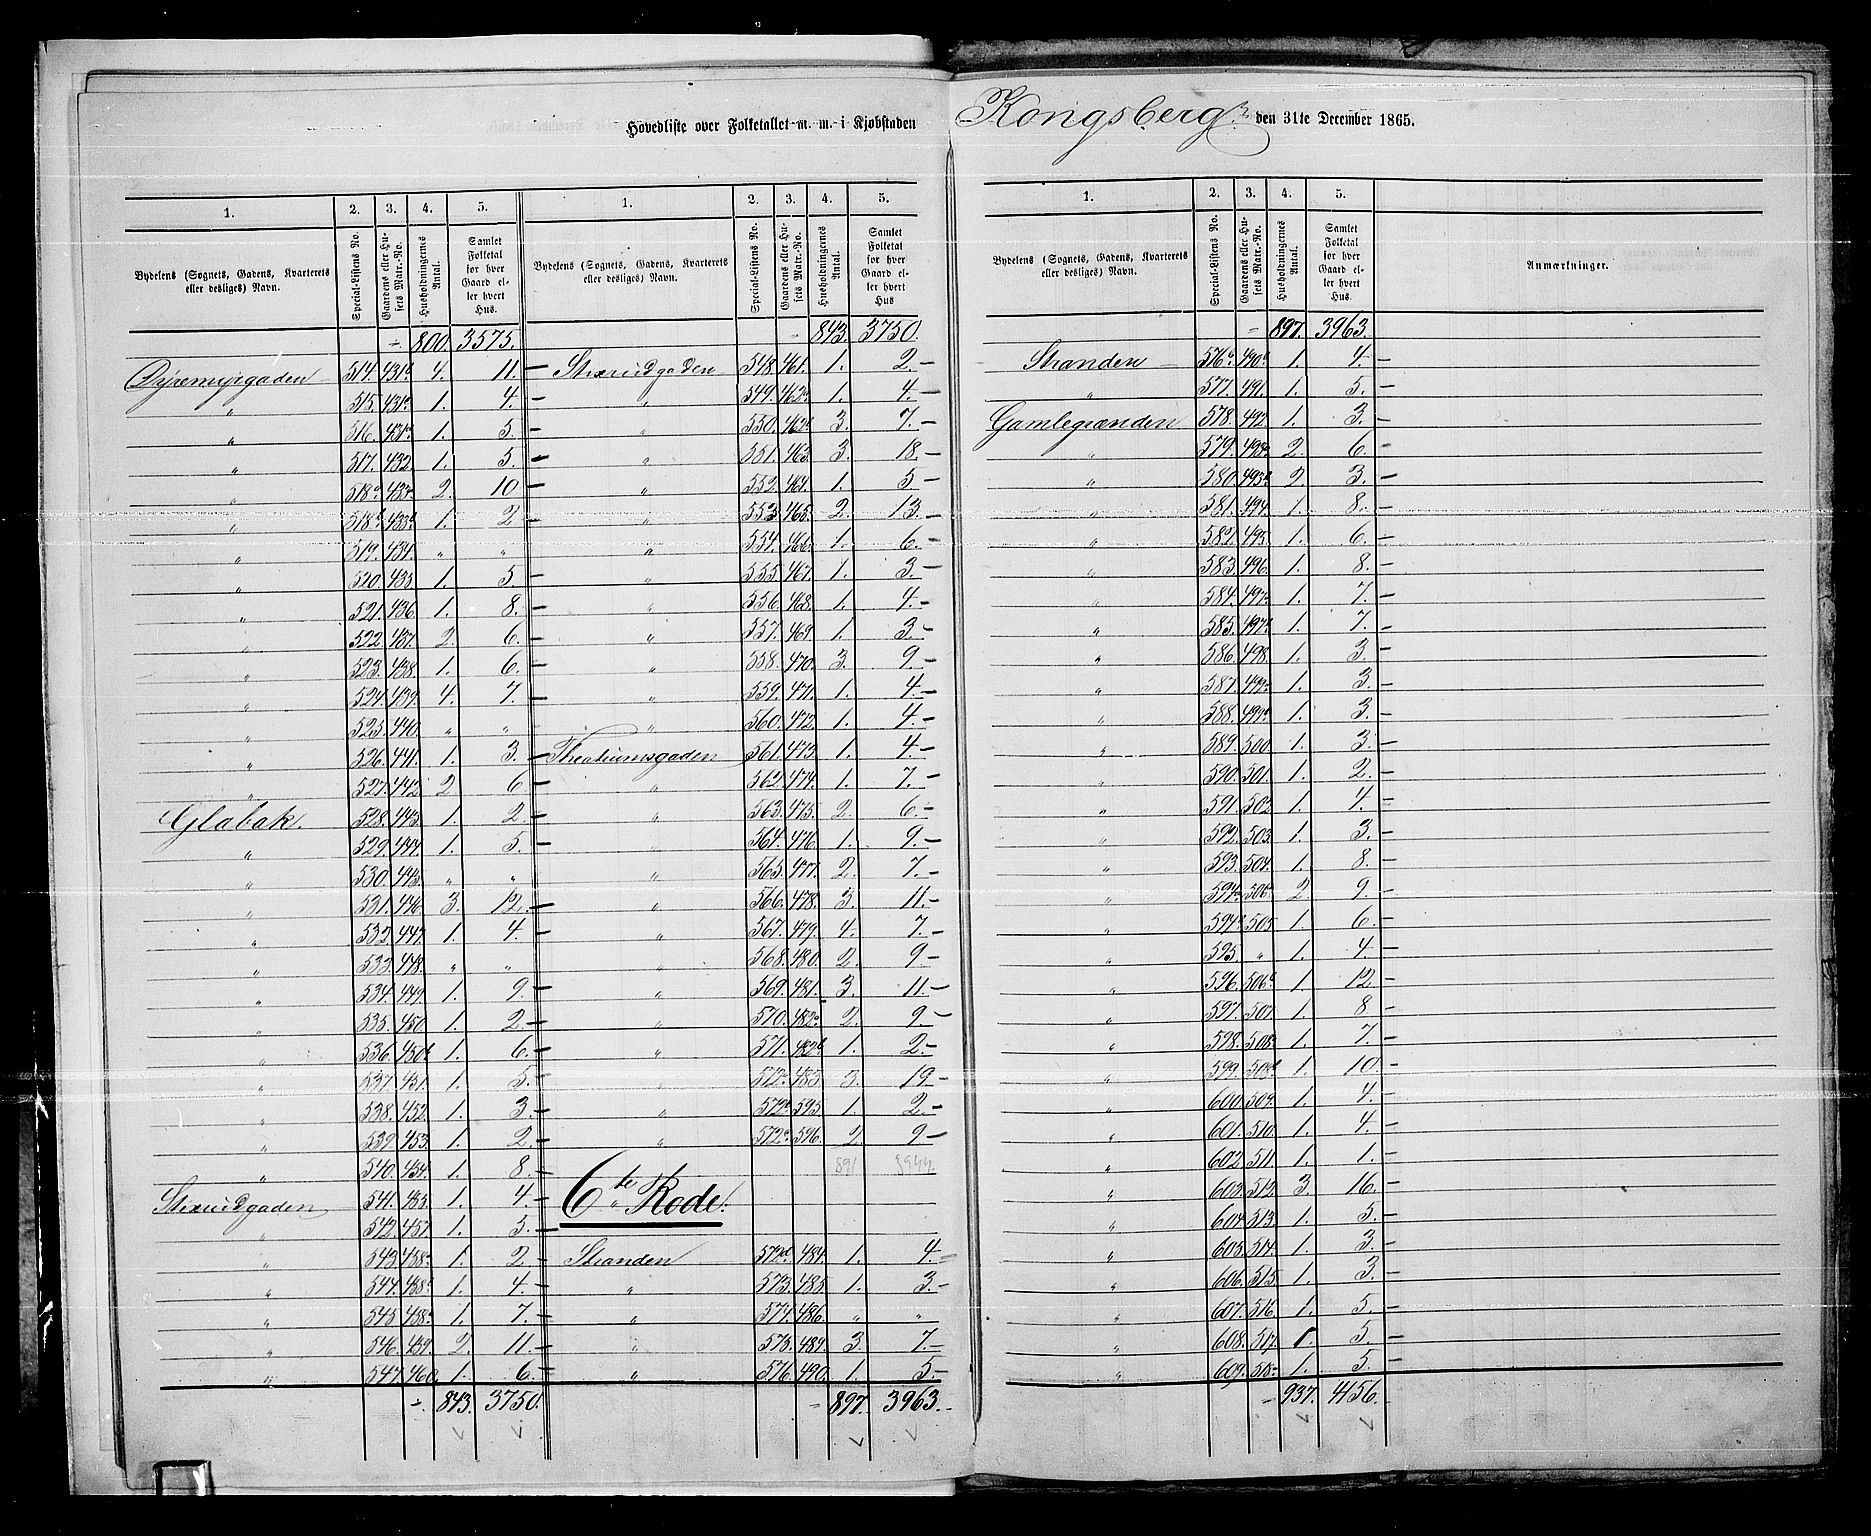 Hovedliste over Folketallet m. m. i Kjøbstaden Kongsberg den 31te December 1865.
1. 2. 3. 4. 5.
Bydelens (Sognets, Gadens, Kvarterets eller desliges) Navn. Special-Listens No. Gaardens eller Husets Matr.-No. Husholdningernes Antal. Samlet Folketal for hver Gaard eller hvert Hus.
800. 3575.
514. 4. 11. —
" 515. 1. 4. —
" 516. 1. 5. —
" 517. 432. 1. 5. —
" 2. 10 —
" 1. 2 —
" 519. 434. " "
" 520. 435. 1. 5. —
" 521. 436. 1. 8. —
" 522. 437. 2. 6. —
" 523. 438. 1. 6. —
" 524. 439. 4. 7. —
" 525. 440. " "
" 526. 441. 1. 3. —
" 527. 442. 2 6 —
Glabak. 528. 443. 1. 2. —
" 529. 444. 1. 5. —
" 530. 445. " "
" 531. 446. 3. 12. —
" 532. 447. 1. 4. —
" 533. 448. " "
" 534. 449. 1. 9. —
" 535. 450. 1. 2. —
" 536. 450b 1. 6. —
" 537. 451. 1. 5. —
" 538. 452. 1. 3. —
" 539. 453. 1. 2. —
" 540. 454. 1. 8. —
541. 455. 1. 4. —
" 542. 457. 1. 5. —
" 543. 1. 2 —
" 544. 1. 4. —
" 545. 1. 7. —
" 546. 459. 2. 11. —
" 547. 460. 1. 6. —
843. 3750.
1. 2. 3. 4. 5.
Bydelens (Sognets, Gadens, Kvarterets eller desliges) Navn. Special-Listens No. Gaardens eller Husets Matr.-No. Husholdningernes Antal. Samlet Folketal for hver Gaard eller hvert Hus
843. 3750.
548. 461. 1. 2. —
" 549. 1. 4. —
" 550. 3. 7. —
" 551. 463. 3. 18. —
" 552. 464. 1. 5 —
" 553. 465. 2. 13. —
" 554. 466. 1. 6. —
" 555. 467. 1. 3. —
" 556. 468. 1. 4. —
" 557. 469. 1. 3. —
" 558. 470. 3. 9. —
" 559. 471. 1. 4. —
" 560. 472. 1. 4. —
561. 473. 1. 4. —
" 562. 474. 1. 7. —
" 563. 475. 2. 6. —
" 564. 476. 1. 9. —
" 565. 477. 2. 7. —
" 566. 478. 3. 11. —
" 567. 479. 4. 7. —
" 568. 480. 2. 9 —
" 569. 481. 3. 11. —
" 570. 482a 2. 9. —
" 571. 482b 1. 2 —
572a 483. 3. 19. —
" 595. 1. 2 —
" 596. 2. 9 —
6te Rode.
Stranden 572d 484. 1. 4.
" 573. 485. 1. 3. —
" 574. 486. " "
" 575. 3. 7. —
" 576. 490. 1. 5 —
897. 3963.
1. 2. 3. 4. 5.
Bydelens (Sognets, Gadens, Kvarterets eller desliges) Navn. Special-Listens No. Gaardens eller Husets Matr.-No. Husholdningernes Antal. Samlet Folketal for hver Gaard eller hvert Hus Anmærkninger.
897. 3963.
Stranden 576b 490b 1. 4. —
" 577. 491. 1. 5. —
Gamlegrænden 578. 492. 1. 3. —
" 579. 493a 2. 6. —
" 580. 493b 2. 3. —
" 581. 494. 1. 8. —
" 582. 495. 1. 6. —
" 583. 496. 1. 8. —
" 584. 497a 1. 7. —
" 585. 497b 1. 7. —
" 586. 498. 1. 3. —
" 587. 499a 1. 3. —
" 588. 499b 1. 3. —
" 589. 500. 1. 3. —
" 590. 501. 1. 2. —
" 591. 502. 1. 4. —
" 592. 503. 1. 3. —
" 593. 504. 1. 8. —
" 2. 9. —
" 594b 505. 1. 6. —
" 595. " 1. 4. —
" 596. 506b 1. 12. —
" 597. 507. 1. 8 —
" 598. 508a 1. 7. —
" 599. 508b 1. 10. —
" 600. 509. 1. 4. —
" 601. 510. 1. 4. —
" 602. 511. 1. 1. —
" 603. 512. 3. 16. —
" 604. 513. 1. 5. —
" 605. 514. 1. 3. —
" 606. 515. 1. 3. —
" 607. 516. 1. 5. —
" 608. 517. 1. 5. —
" 609. 518. 1. 5. —
937. 4156.